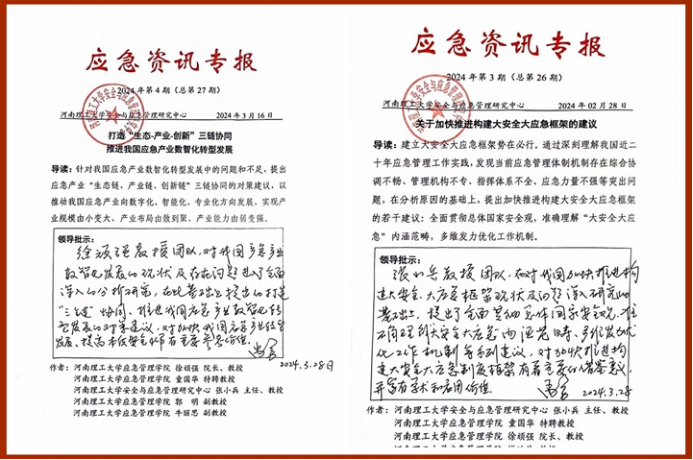 应急资讯专报
2024年第4期（总第27期）
河南理工大学安全与应急管理研究中心 2024年3月16日
打造“生态-产业-创新”三链协同
推进我国应急产业数智化转型发展
导读：针对我国应急产业数智化转型发展中的问题和不足，提出
应急产业“生态链、产业链、创新链”三链协同的对策建议，以
推动我国应急产业向数字化、智能化、专业化方向发展，实现产
业规模由小变大、产业布局由散到聚、产业能力由弱变强。
领导批示：
徐顽强教授团队，对我国应急产业
数智化发展的现状及存在问题进行了全面
深入的分析研究，在此基础上提出的打造
“三链”协同、推进我国应急产业数智化转
型发展的对策建议，对加快我国应急产业转型
发展、提高本质安全水平有重要参考价值。
2024.3.28日
作者：河南理工大学应急管理学院 徐顽强 院长、教授
河南理工大学应急管理学院 童国华 特聘教授
河南理工大学安全与应急管理研究中心 张小兵 主任、教授
河南理工大学应急管理学院 郭 明 副教授
河南理工大学应急管理学院 牛丽思 副教授
应急资讯专报
2024年第3期（总第26期）
河南理工大学安全与应急管理研究中心 2024年02月28日
关于加快推进构建大安全大应急框架的建议
导读：建立大安全大应急框架势在必行，通过深刻理解我国近二
十年应急管理工作实践，发现当前应急管理体制机制存在综合协
调不畅、管理机构不专、指挥体系不全、应急力量不强等突出问
题，在分析原因的基础上，提出加快推进构建大安全大应急框架
的若干建议：全面贯彻总体国家安全观，准确理解“大安全大应
急”内涵范畴，多维发力优化工作机制。
领导批示：
张小兵教授团队，在对我国加快推进构
建大安全大应急框架现状及问题深入研究的
基础上，提出了全面贯彻总体国家安全观、准
确理解大安全大应急内涵范畴、多维发力优
化工作机制等系列建议，对加快推进构
建大安全大应急制度框架有着重要的借鉴意义，
并富有学术和应用价值。
2024.3.28
作者：河南理工大学安全与应急管理研究中心 张小兵 主任、教授
河南理工大学应急管理学院 童国华 特聘教授
河南理工大学应急管理学院 徐顽强 院长、教授